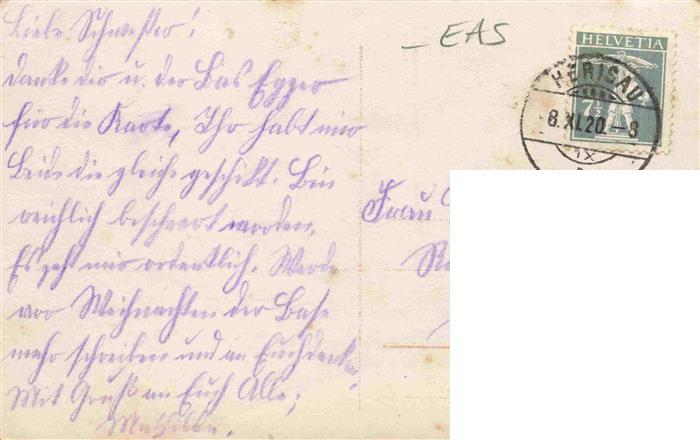 Liebe Schwester!
danke dir u. der Bas Egger
für die Karte, Ihr habt mir
Beide die gleiche geschikt. Bin
reichlich beschert worden.
Es geht mir ordentlich. Werde
vor Weihnachten der Base
mehr schreiben und an Euch denken.
Mit Gruß an Euch Alle,
Mathilde.
– EAS
HELVETIA
7½
HERISAU
8.XI.20.–8
IX
Frau